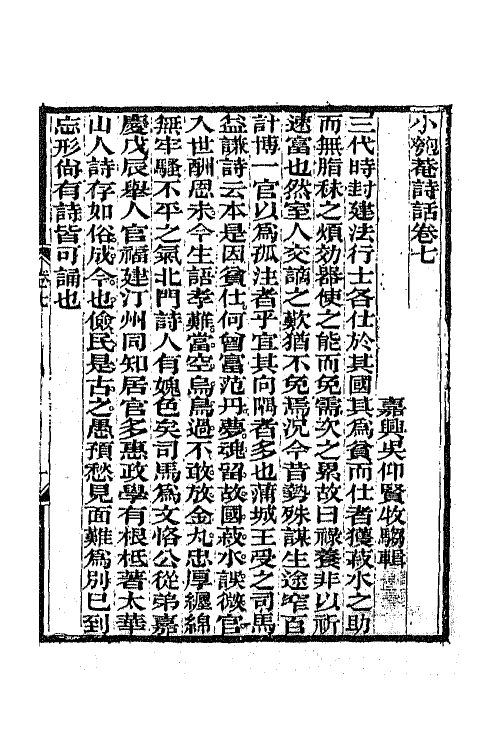 小匏菴詩話卷七
嘉興吳仰賢牧騶輯
三代時封建法行士各仕於其國其為貧而仕者獲菽水之助
而無脂秣之煩効器使之能而免需次之累故曰祿養非以祈
速富也然至人交謫之歎猶不免焉況今昔勢殊謀生途窄百
計博一官以為孤注者乎宜其向隅者多也蒲城王受之司馬
益謙詩云本是因貧仕何曾富范丹夢魂留故國菽水誤微官
入世酬恩未今生語孝難當空烏鳥過不敢放金丸忠厚纏綿
無牢騷不平之氣北門詩人有媿色矣司馬為文恪公從弟嘉
慶戊辰舉人官福建汀州同知居官多惠政學有根柢著太華
山人詩存如俗成今也儉民是古之愚預愁見面難為別已到
忘形尙有詩皆可誦也
卷七
一